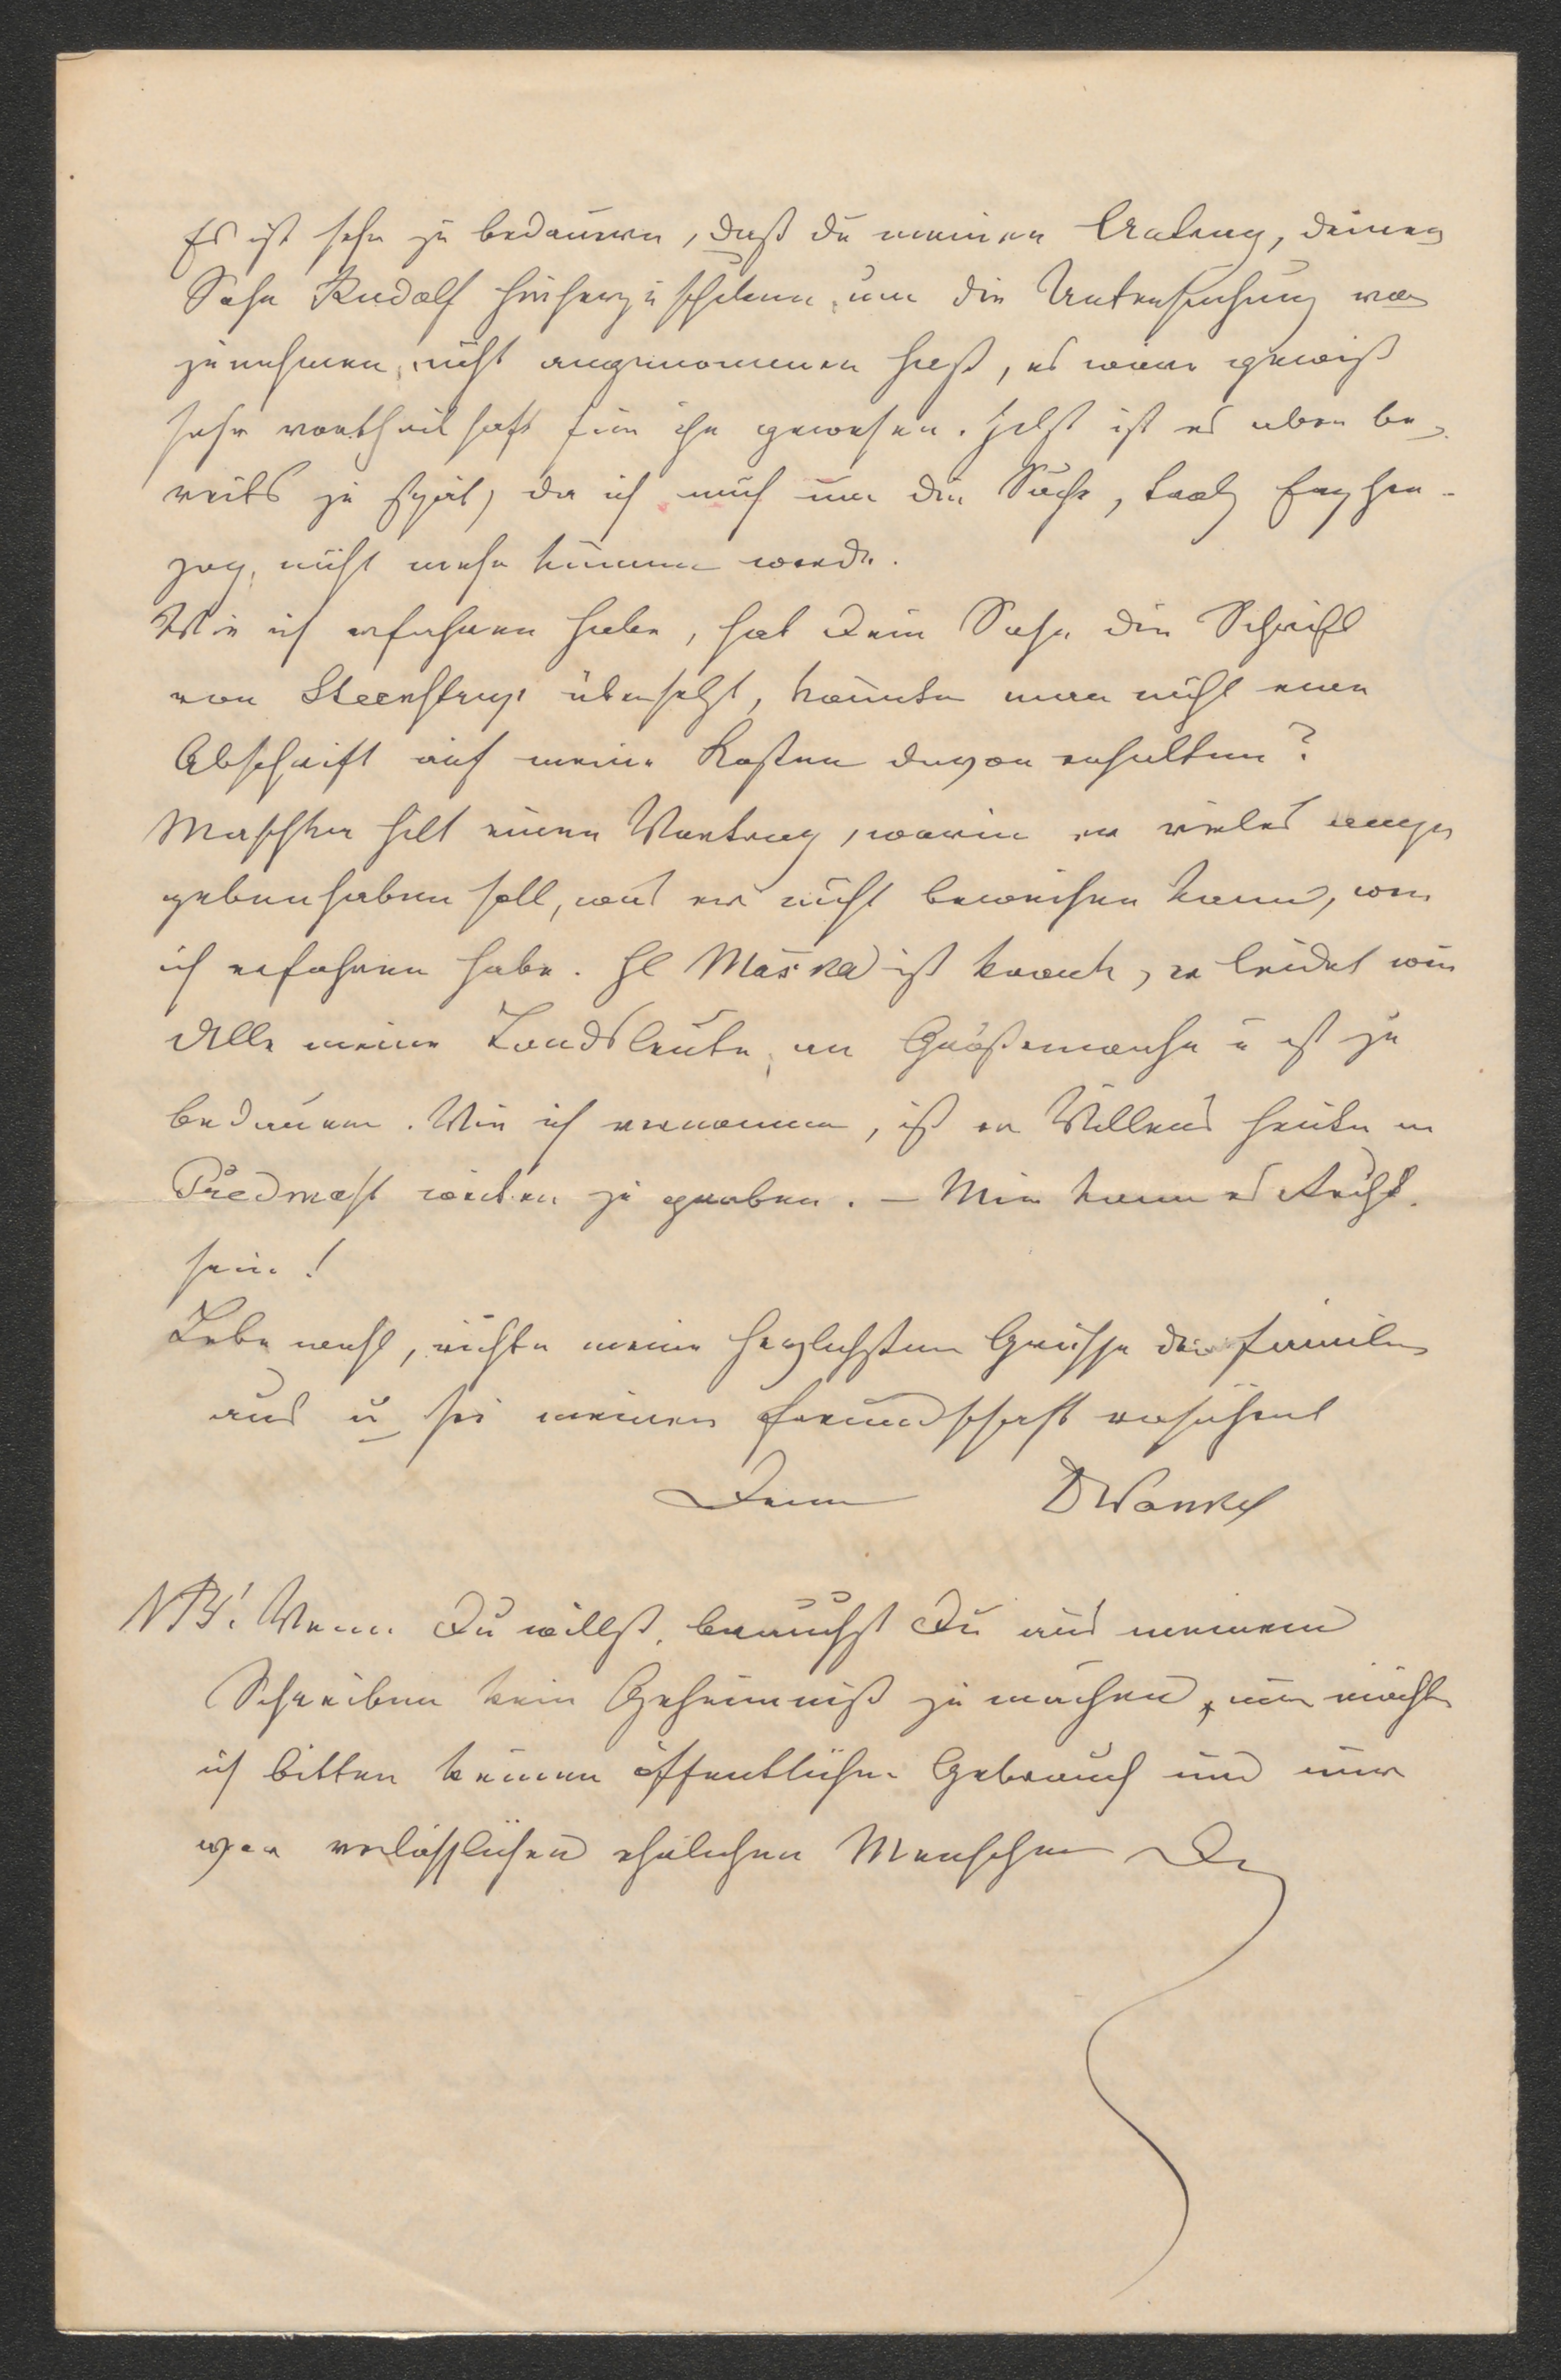 Es ist sehr zu bedauern, daß du meinen Antrag, deinen
Sohn Rudolf hieherzuschicken, um die Untersuchung vor
zunehmen, nicht angenommen hast, es wäre gewiß
sehr vortheilhaft für ihn gewesen. Jetzt ist es aber be-
reits zu spät, da ich mich um die Sache,
nicht mehr kümmern werde.
Wie ich erfahren habe, hat Dein Sohn die Schrift
von Steenstrup übersetzt, könnte man nicht eine
Abschrift auf meine Kosten davon erhalten?
Maschka hilt einen Vortrag, worin er vieles ange
geben haben soll, was er nicht beweisen kann, wie
ich erfahren habe. H Maška ist krank, er leidet wie
Alle meine Landsleute, an Größenwahn u ist zu
bedauern. Wie ich vernommen, ist er Willens heuer in
Předmost weiter zu graben. – Mir kann es Recht
sein!
Lebe wohl, richte meine herzlichsten Grüsse der Familie
aus u sei meiner Freundschaft versichert
Dein DWankel
NB! Wenn Du willst, brauchst Du aus meinem
Schreiben kein Geheimniß zu machen, nur möchte
ich bitten keinen öffentlichen Gebrauch und nur
verlässlichen ehrlichen Menschen